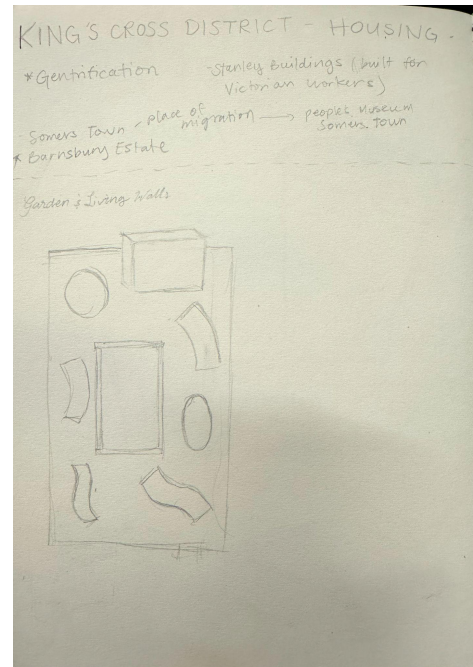 KING'S CROSS DISTRICT - HOUSING -
*Gentrification
- Stanley Buildings (built for
Victorian workers)
- Somers Town - place of
migration → people's Museum
Somers Town
* Barnsbury Estate
Garden & Living Walls